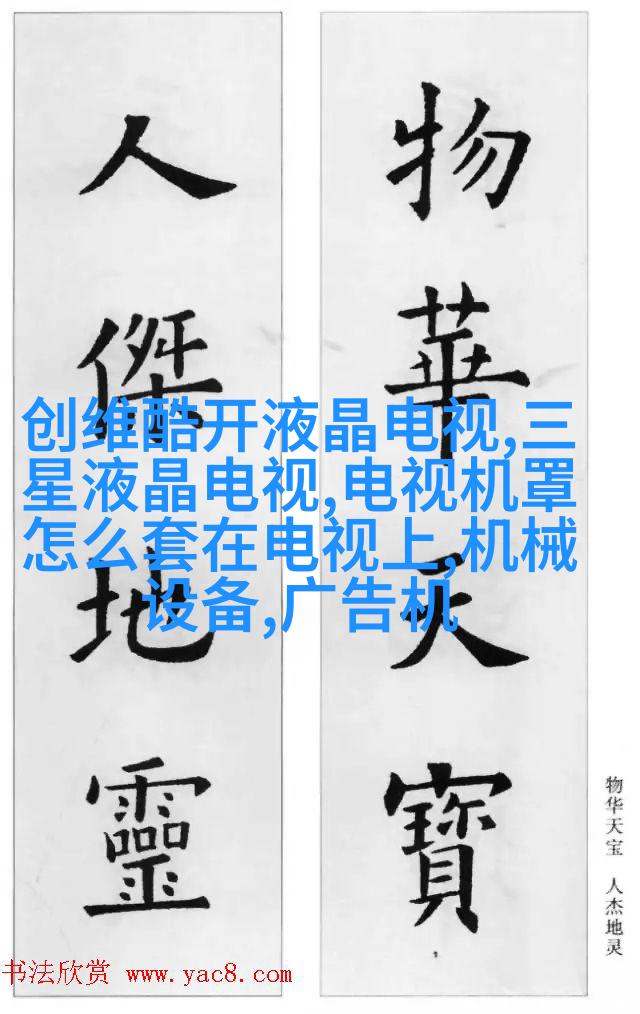 物華天寶
人傑地靈
创维酷开液晶电视,三
星液晶电视,电视机罩
怎么套在电视上,机械
设备,广告机
物华天宝 人杰地灵
书法欣赏 www.yac8.com